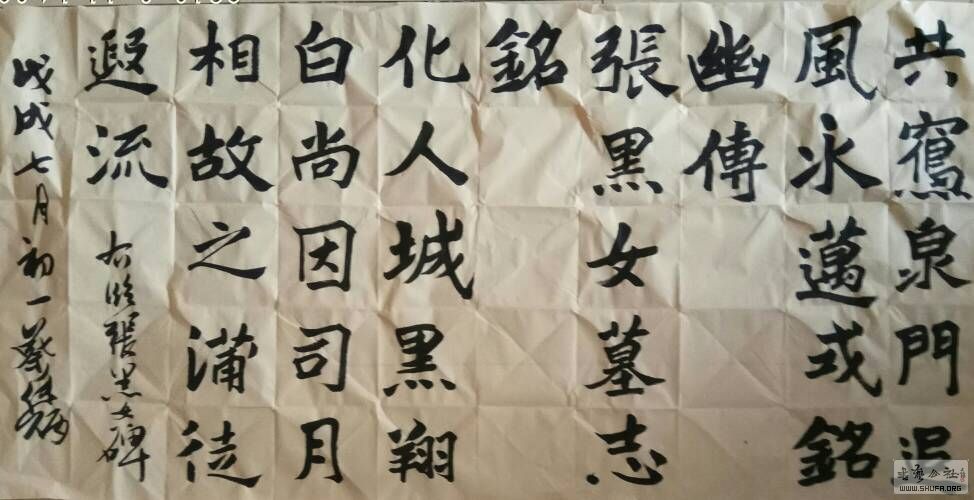 共泉門追
風永邁式銘
幽傳
張黑女墓志
銘
化人城黑翔
白尚因司月
相故之蒲徒
遐流
右臨張黑女碑
戊戌七月初一
書藝公社
WWW.SHUFA.ORG